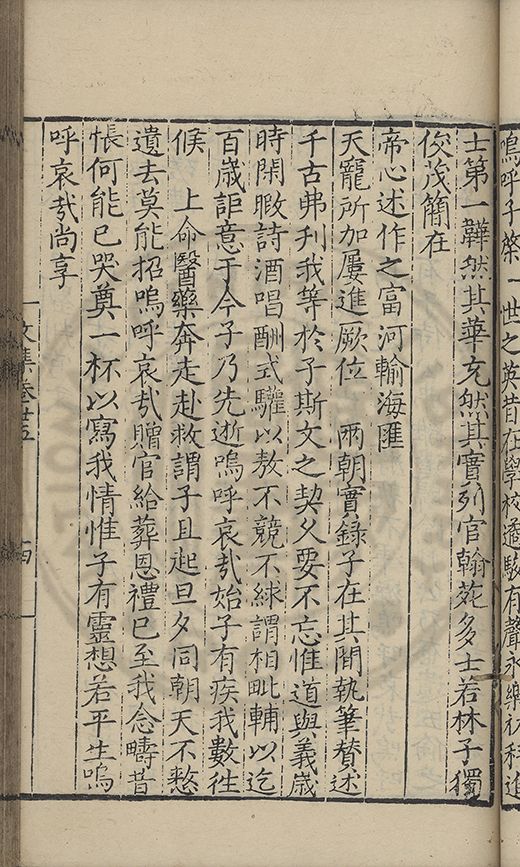 嗚呼子棨一世之英昔在學校逸駿有聲永樂初科進
士第一韡然其華充然其實列官翰苑多士若林子獨
俊茂簡在
帝心述作之富河輸海匯
天寵所加屢進厥位　兩朝實録子在其間執筆賛述
千古弗刋我等於子斯文之契久要不忘惟道與義歲
時閑暇詩酒唱酬式驩以敖不競不絿謂相毗輔以迄
百歳詎意于今子乃先逝嗚呼哀㢤始子有疾我數徃
候　上命醫藥奔走赴救謂子且起旦夕同朝天不憗
遺去莫能招嗚呼哀㢤贈官給葬恩禮已至我念疇昔
悵何能已哭奠一杯以寫我情惟子有靈想若平生嗚
呼哀㢤尚享
文集卷廿五
四